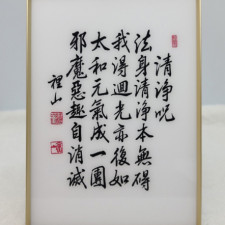 清淨呪
法身清淨本無碍
我得迴光亦復如
太和元氣成一團
邪魔惡趣自消滅
裡山